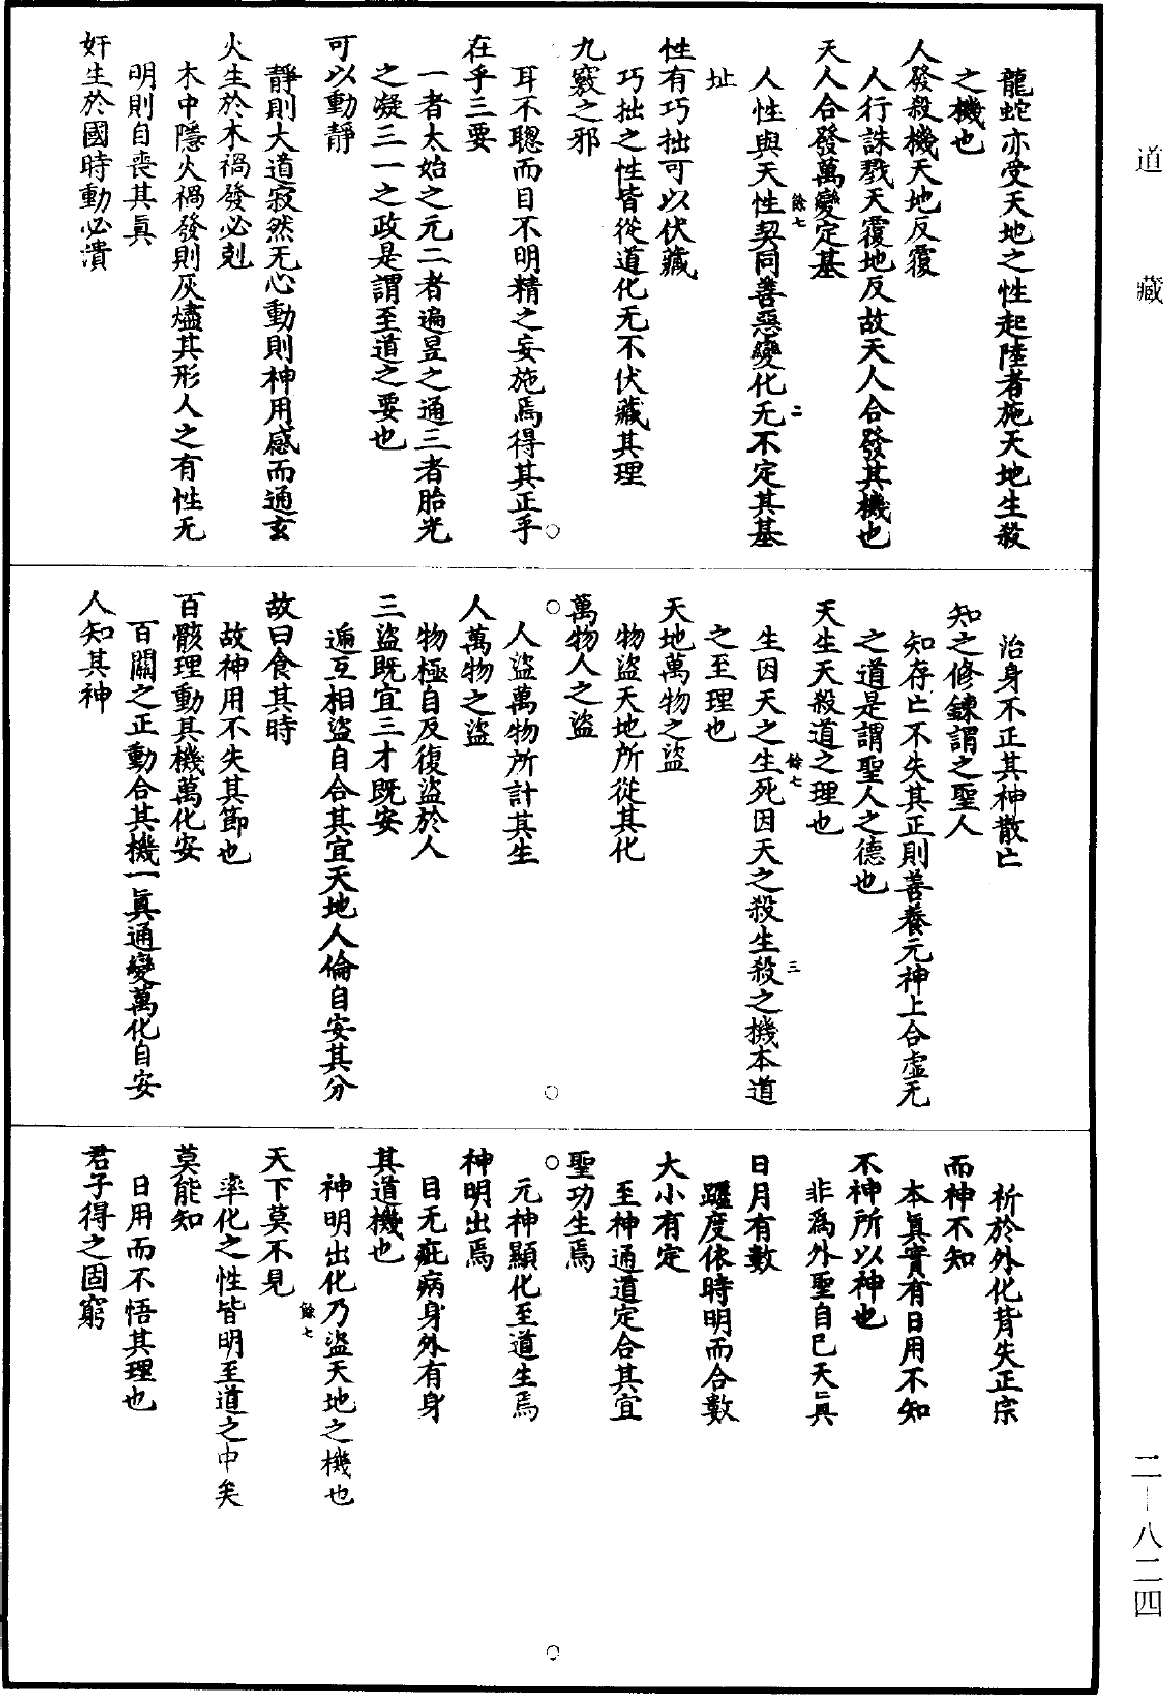 道藏
龍蛇亦受天地之性起陸者施天地生殺
之機也
人發殺機天地反覆
人行誅戮天覆地反故天人合發其機也
天人合發萬變定基
餘七
二
人性與天性契同善惡變化无不定其基
址
性有巧拙可以伏藏
巧拙之性皆從道化无不伏藏其理
九竅之邪
耳不聰而目不明精之妄施焉得其正乎
在乎三要
一者太始之元二者遍昱之通三者胎光
之凝三一之政是謂至道之要也
可以動靜
靜則大道寂然无心動則神用感而通玄
火生於木禍發必剋
木中隱火禍發則灰燼其形人之有性无
明則自喪其真
奸生於國時動必潰
治身不正其神散亡
知之修鍊謂之聖人
知存亡不失其正則善養元神上合虛无
之道是謂聖人之德也
天生天殺道之理也
餘七
三
生因天之生死因天之殺生殺之機本道
之至理也
天地萬物之盜
物盜天地所從其化
萬物人之盜
人盜萬物所計其生
人萬物之盜
物極自反復盜於人
三盜既宜三才既安
遞互相盜自合其宜天地人倫自安其分
故曰食其時
故神用不失其節也
百骸理動其機萬化安
百關之正動合其機一真通變萬化自安
人知其神
祈於外化背失正宗
而神不知
本真實有日用不知
不神所以神也
非爲外聖自己天真
日月有數
躔度依時明而合數
大小有定
至神通道定合其宜
聖功生焉
元神顯化至道生焉
神明出焉
目无疵病身外有身
其道機也
神明出化乃盜天地之機也
天下莫不見
餘七
率化之性皆明至道之中矣
莫能知
日用而不悟其理也
君子得之固窮
二－八二四